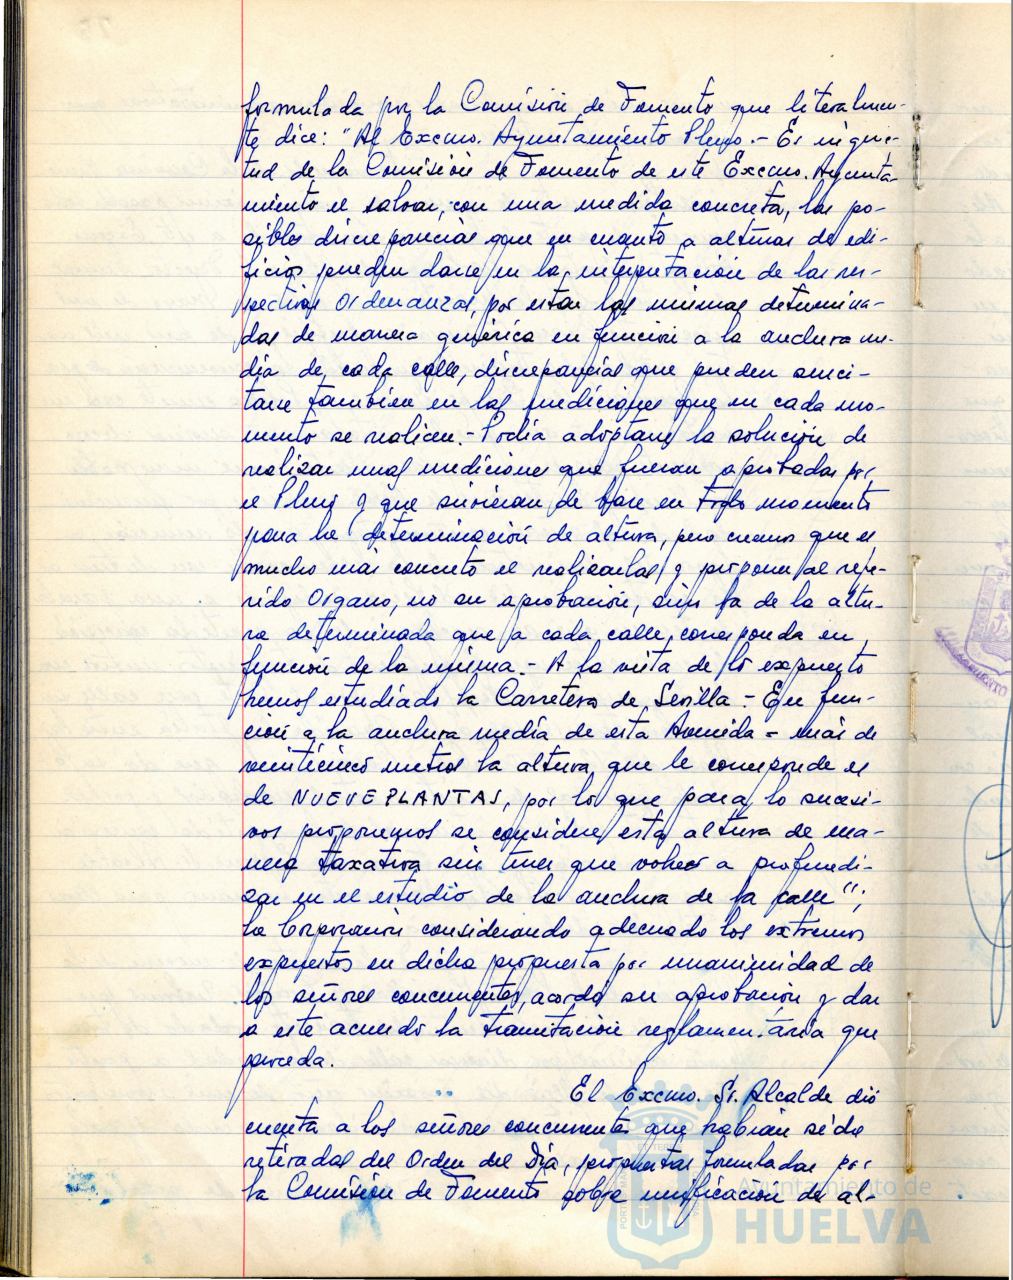 formulada por la Comisión de Fomento que literalmen-
te, dice: "Al Excmo. Ayuntamiento Pleno.- Es inquie-
tud de la Comisión de Fomento de este Excmo. Ayunta-
miento el salvar, con una medida concreta, las po-
sibles discrepancias que en cuanto a alturas de edi-
ficios pueden darse en la interpretación de las res-
pectivas Ordenanzas, por estar las mismas determina-
das de manera genérica en función a la anchura me-
dia de cada calle, discrepancias que pueden susci-
tarse también en las mediciones que en cada mo-
mento se realicen.- Podía adoptarse la solución de
realizar unas mediciones que fueran aprobadas por
el Pleno y que sirvieran de base en todo momento
para la determinación de altura, pero creemos que es
mucho más concreto el realizarlas y proponer al refe-
rido Organo, no su aprobación, sino la de la altu-
ra determinada que a cada calle corresponda en
función de la misma.- A la vista de lo expuesto
hemos estudiado la Carretera de Sevilla.- En fun-
ción a la anchura media de esta Avenida - más de
veinticinco metros la altura que le corresponde es
de NUEVE PLANTAS, por lo que para lo sucesi-
vos proponemos se considere esta altura de ma-
nera taxativa sin tener que volver a profundi-
zar en el estudio de la anchura de la calle";
la Corporación considerando adecuado los extremos
expuestos en dicha propuesta por unanimidad de
los señores concurrentes, acordó su aprobación y dar
a este acuerdo la tramitación reglamentaria que
proceda.
El Excmo. Sr. Alcalde dió
cuenta a los señores concurrentes que habían sido
retiradas del Orden del Día, propuestas formuladas por
la Comisión de Fomento sobre unificación de al-
Ayuntamiento de
HUELVA